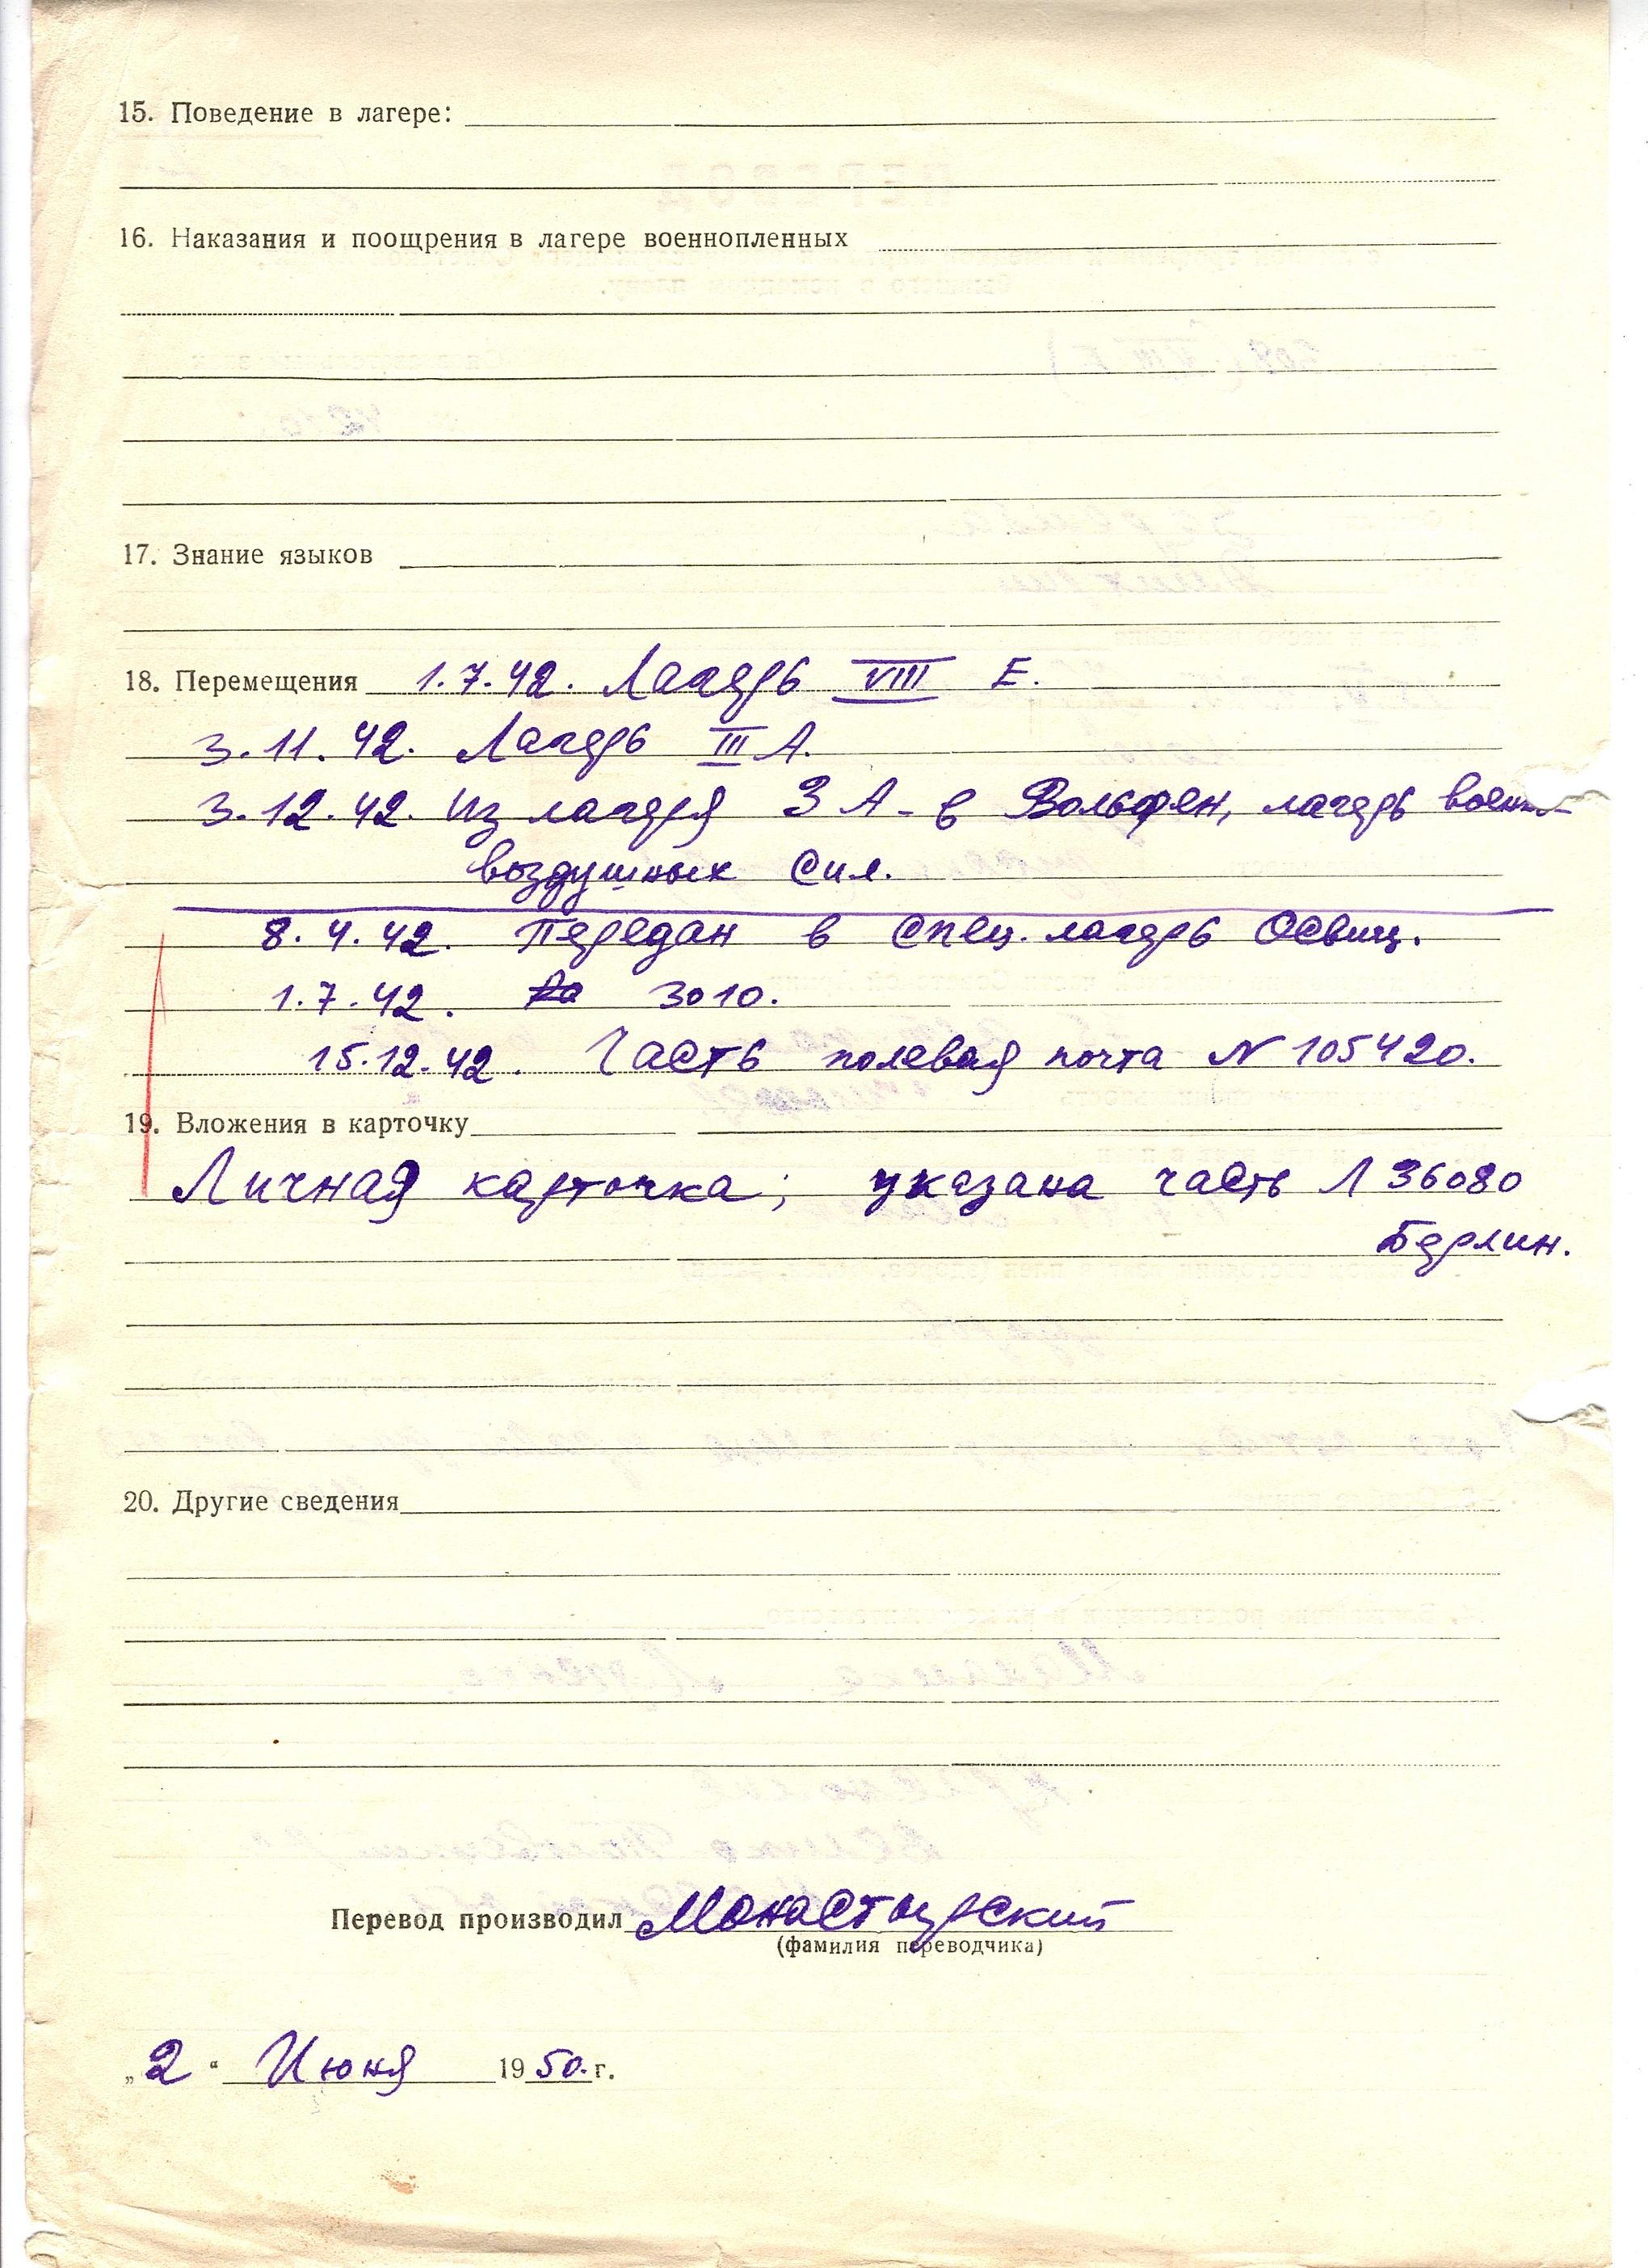 15. Поведение в лагере:
16. Наказания и поощрения в лагере военнопленных
17. Знание языков
18. Перемещения 1.7.42. Лагерь VIII Е.
3.11.42. Лагерь III А.
3.12.42. Из лагеря 3 А - в Вольфен, лагерь военно-
воздушных сил.
8.4.42. Передан в спец. лагерь Освиц.
1.7.42. 3010.
15.12.42. Часть полевая почта N 105420.
19. Вложения в карточку
Личная карточка; указана часть Л 36080
Берлин.
20. Другие сведения
Перевод производил Монастырский
(фамилия переводчика)
„2“ Июня 1950.г.